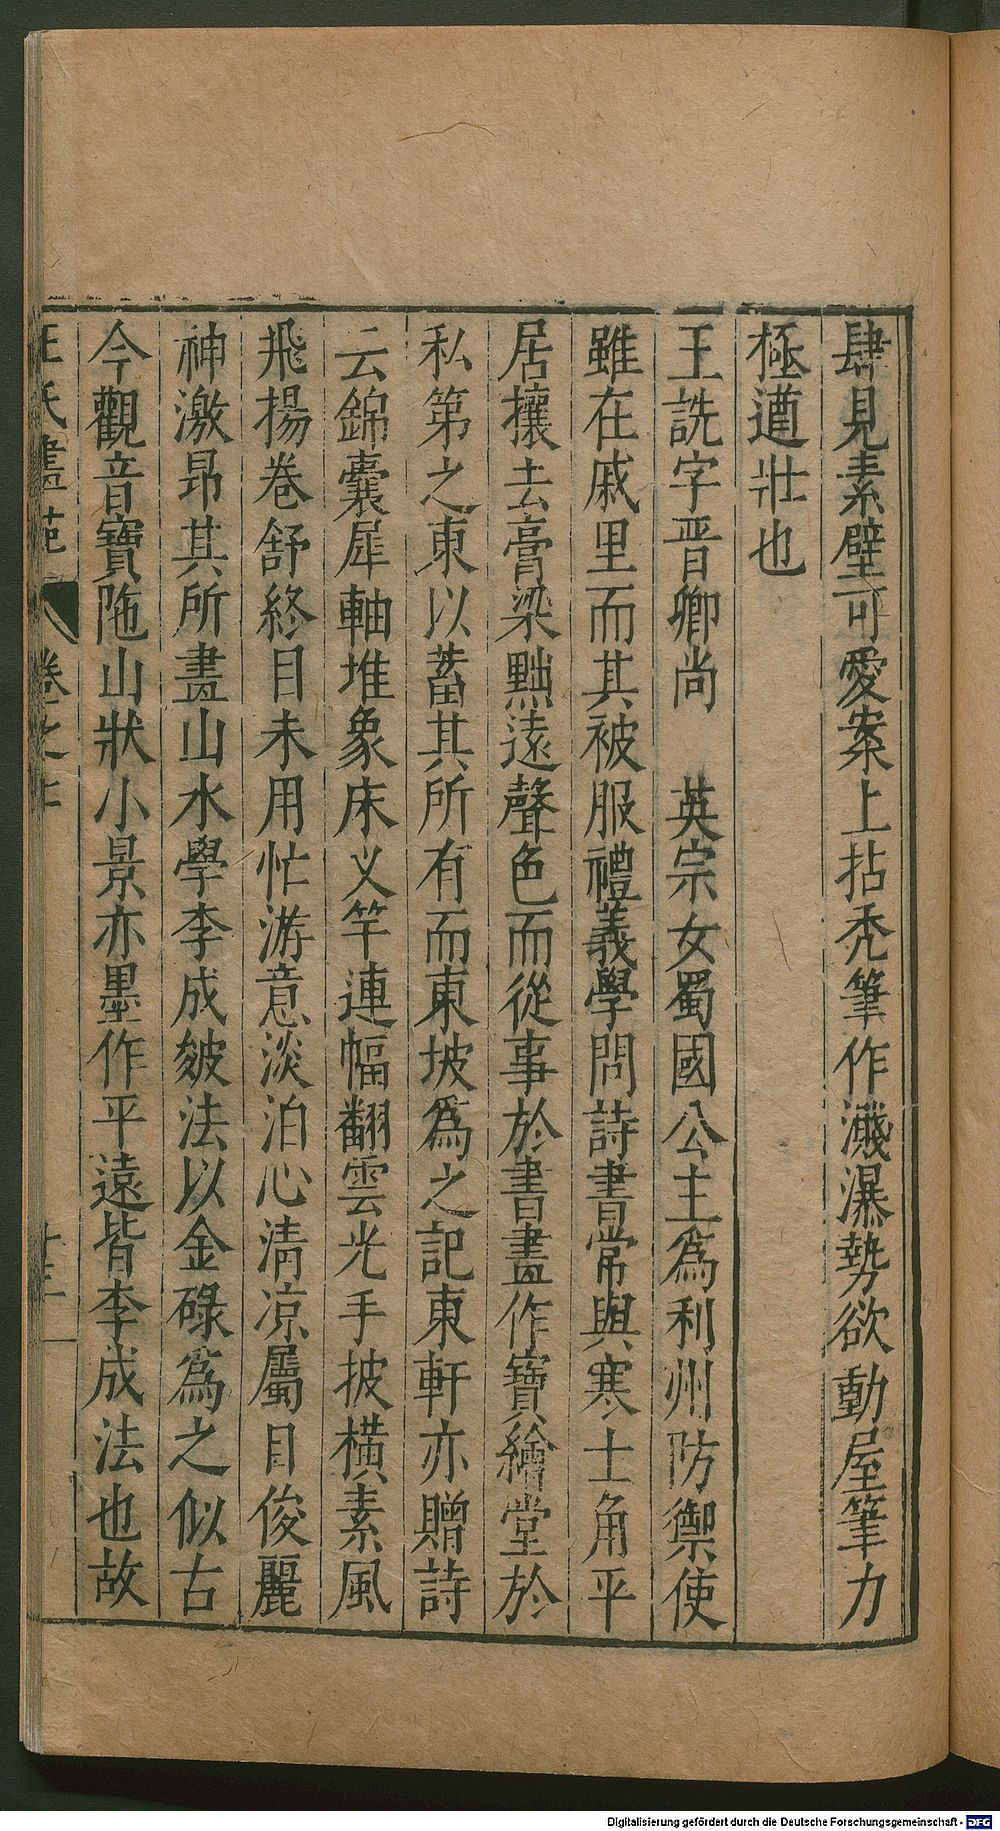 肆見素壁可愛案上拈禿筆作濺瀑勢欲動屋筆力
極遒壯也
王詵字晋卿尚　英宗女蜀國公主爲利州防禦使
雖在戚里而其被服禮義學問詩書常與寒士角平
居攘去膏梁黜遠聲色而從事於書畫作寶繪堂於
私第之東以蓄其所有而東坡爲之記東軒亦贈詩
云錦囊犀軸堆象床义竿連幅翻雲光手披橫素風
飛揚卷舒終目未用忙游意淡泊心清凉屬目俊麗
神激昻其所畫山水學李成皴法以金碌爲之似古
今觀音寶陁山狀小景亦墨作平遠皆李成法也故
王氏畫苑
卷之
十三
Digitalisierung gefördert durch die Deutsche Forschungsgemeinschaft - DFG